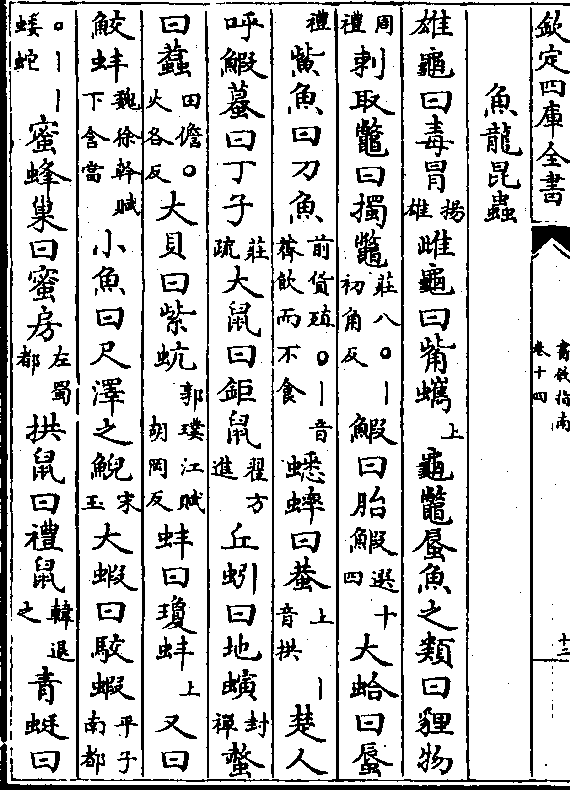 欽定四庫全書
書敘指南
卷十四
魚龍昆蟲
雄龜曰毒冒揚雄雌龜曰觜蠵上龜鼈蜃魚之類曰貍物
周禮刺取鼈曰擉鼈莊八○丨初角反鰕曰胎鰕選十四大蛤曰蜃
禮鮆魚曰刀魚前貨殖○丨音薺飲而不食蟋蟀曰蛬上丨音拱楚人
呼鰕蟇曰丁子莊疏大鼠曰鉅鼠翟方進丘蚓曰地螾封禪螫
曰蠚田儋○火各反大貝曰紫蚢郭璞江賦胡岡反蚌曰瓊蚌上又曰
鮫蚌魏徐幹賦下含當小魚曰尺澤之鯢宋玉大蝦曰駮蝦平子南都
○丨丨蜲蛇蜜蜂巢曰蜜房左蜀都拱鼠曰禮鼠韓退之青蜓曰